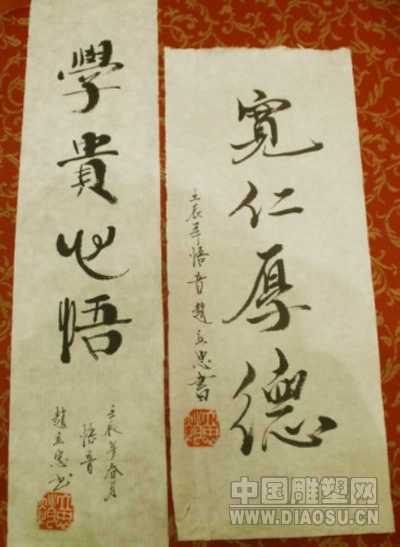 學貴心悟
壬辰年春月
悟音
趙立忠书
寬仁厚德
壬辰年悟音趙立忠書
中国雕塑网
WWW.DIAOSU.CN